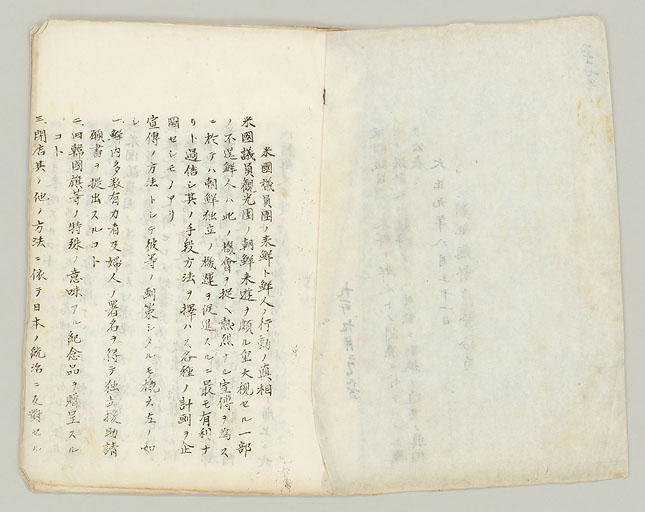 米國議員團ノ来鮮ト鮮人ノ行動ノ真相
米國議員観光團ノ朝鮮来遊ヲ頗ル重大視セル一部
ノ不逞鮮人ハ此ノ機會ヲ捉ヘ熱烈ナル宣傳ヲ為ス
ニ於テハ朝鮮独立ノ機運ヲ促進スルニ最モ有利ナ
リト過信シ其ノ手段方法ヲ擇ハス各種ノ計劃ヲ企
圖セシモノアリ
宣傳ノ方法トシテ彼等ノ劃策シタルモ概子左ノ如
シ
一、鮮内多数有力者及婦人ノ署名ヲ得テ独立援助請
願書ヲ提出スルコト
二、旧韓國旗等ノ特殊ノ意味アル紀念品ヲ贈呈スル
コト
三、閉店其ノ他ノ方法ニ依テ日本ノ統治ニ反對セル